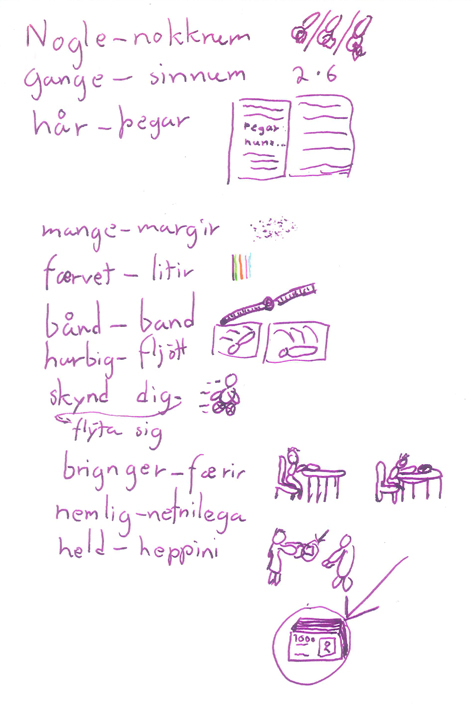 Nogle-nokkrum
Gange- sinnum 2·6
hår-þegar
þegar
hund...
mange-margir
færvet - litir
bånd - band
hurbig- fljótt
skynd dig-
flýta sig
brignger-færir
nemlig-nefnilega
held - heppini
1000